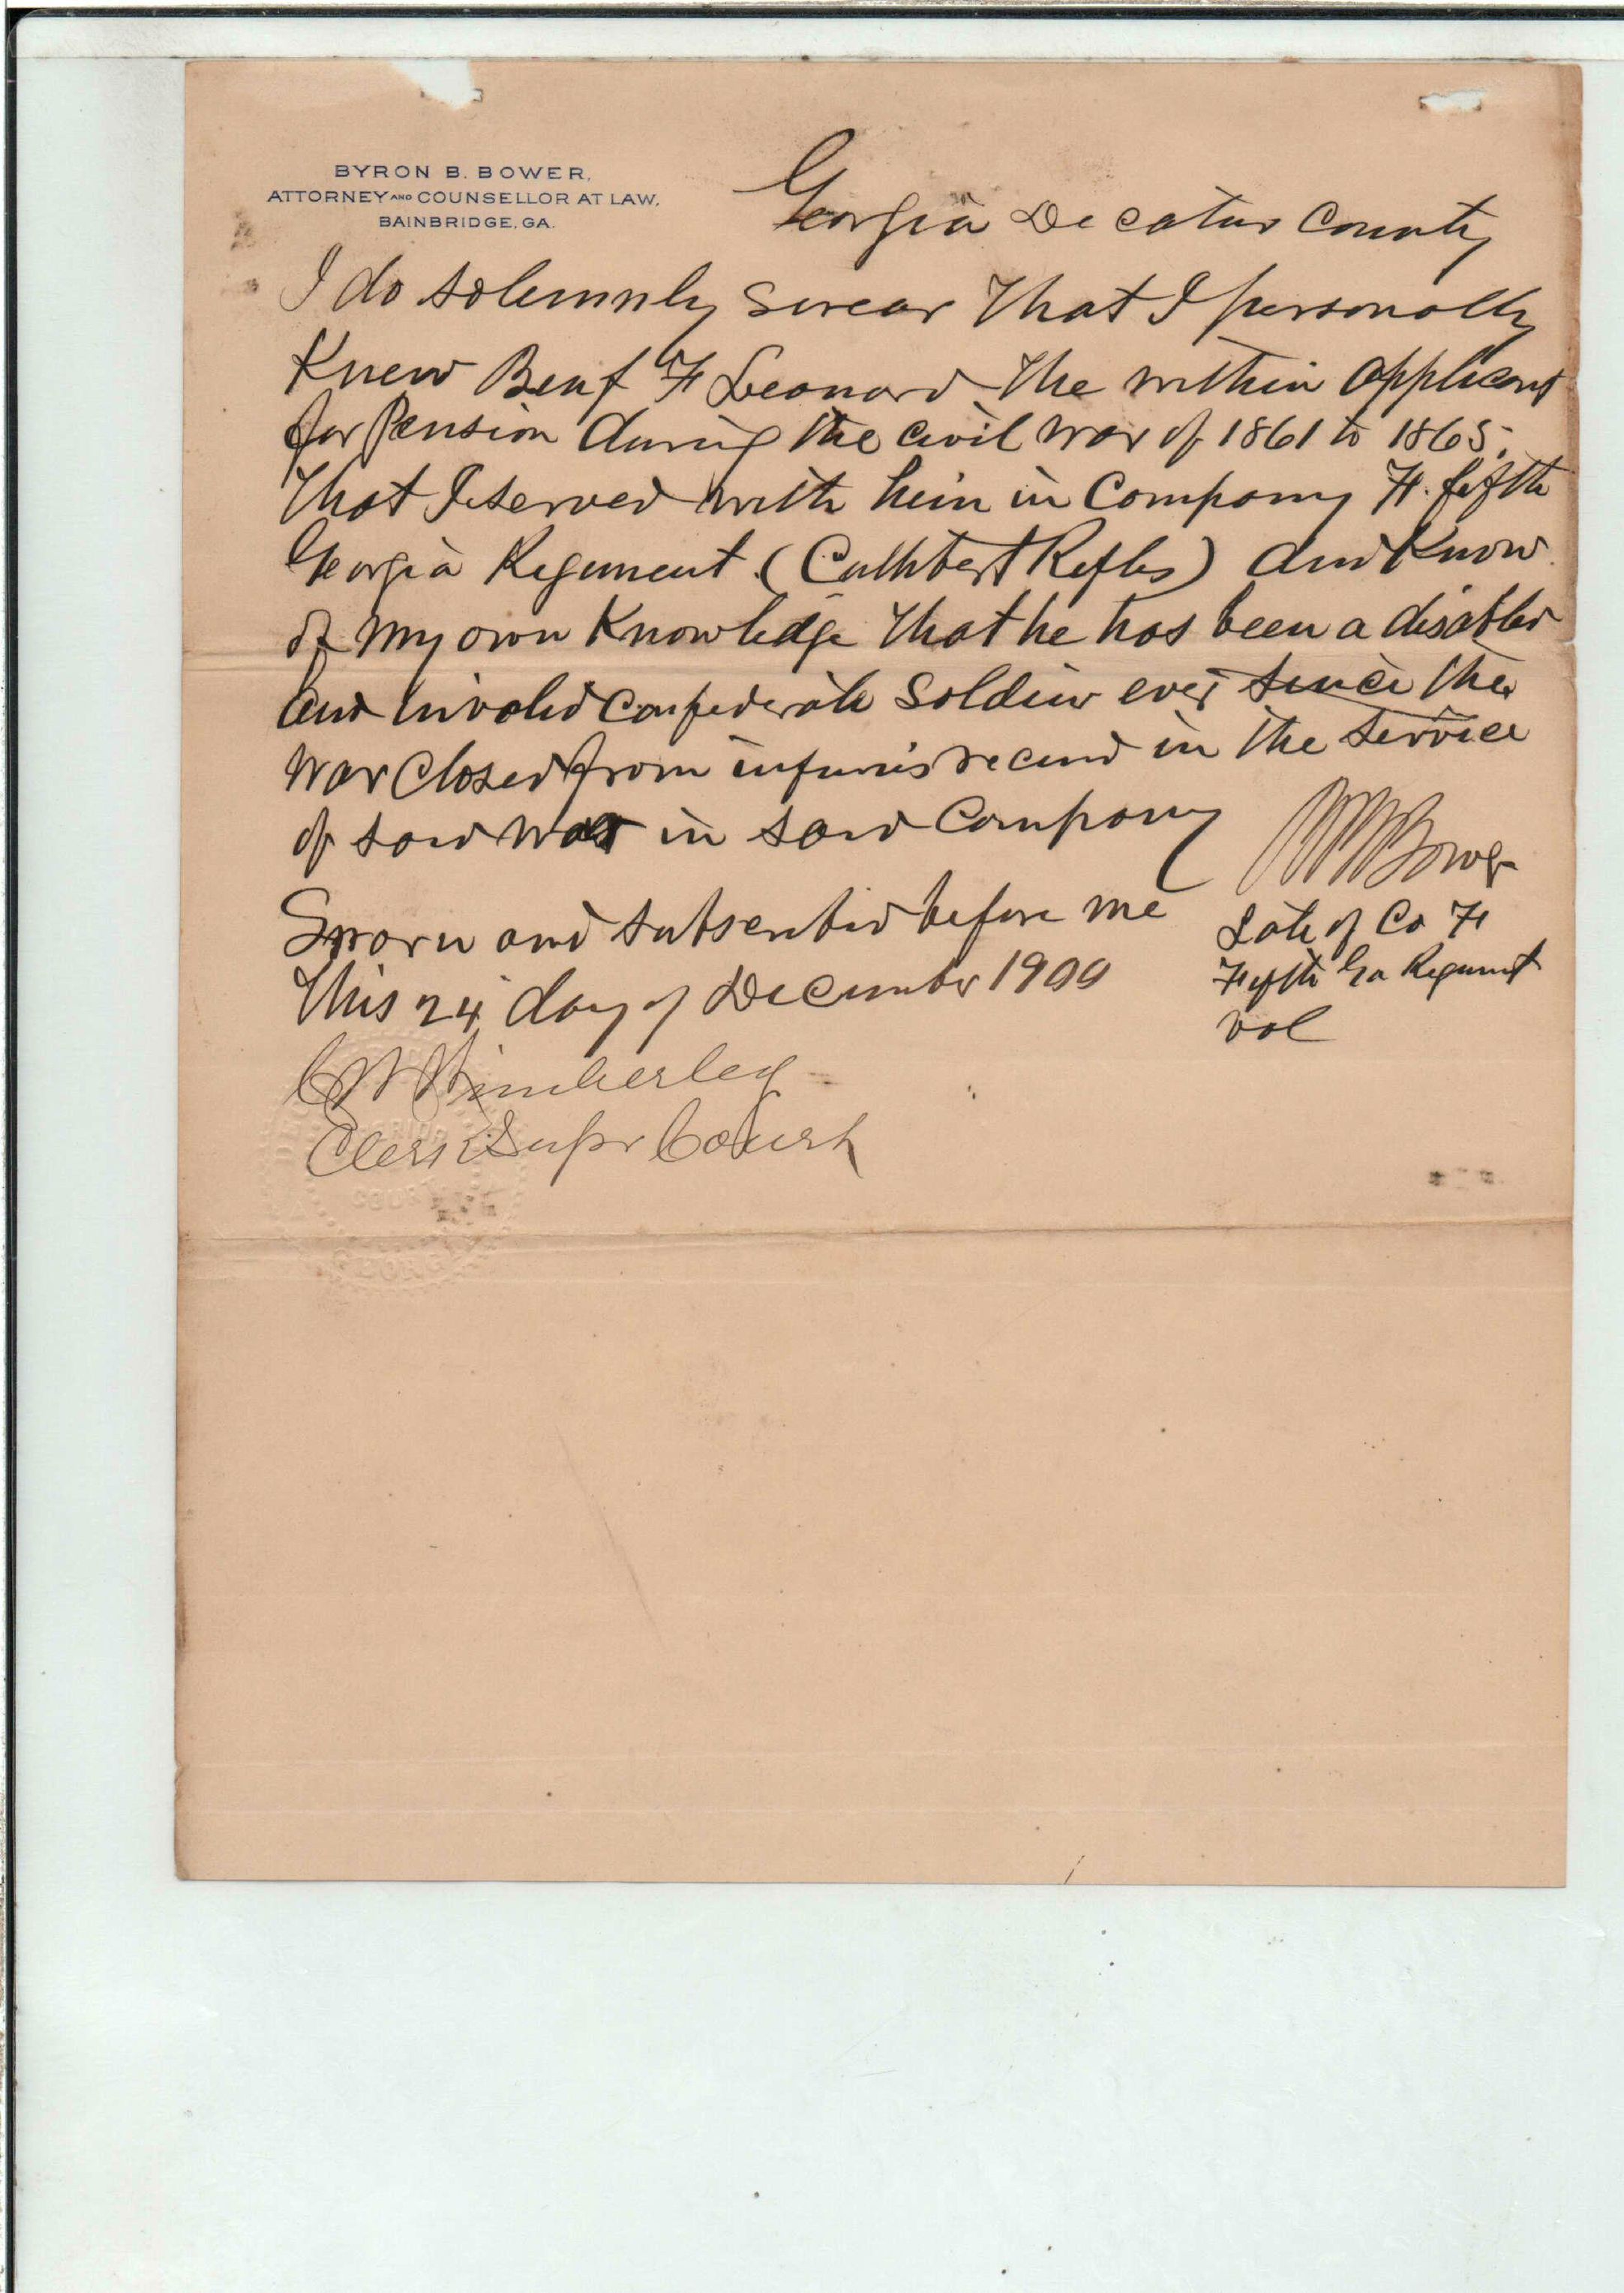 BYRON B. BOWER,
ATTORNEY AND COUNSELLOR AT LAW,
BAINBRIDGE, GA.
Georgia Decatur County
I do solemnly swear that I personally
Knew Benj F Leonard the within applicant
for Pension during the civil war of 1861 to 1865.
That I served with him in Company F. fifth
Georgia Regiment (Cuthbert Rifles) and Know
of my own Knowledge that he has been a disabled
and invalid confederate soldier ever since the
war closed from injuries recend in the service
of said war in said company
BBBower
Sworn and subscribed before me
this 24 day of December 1900
Late of Co F
Fifth Ga Regiment
Vol
C W Wimberley
Clerk Supr Court
COURT
GEORGIA